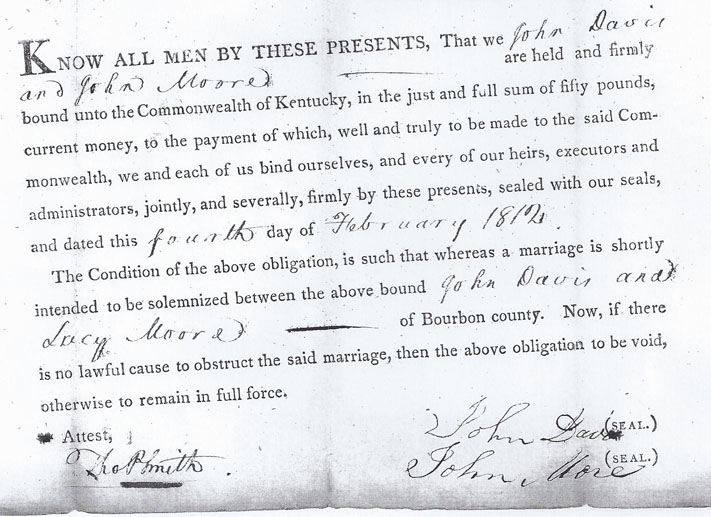 KNOW ALL MEN BY THESE PRESENTS, That we John Davis
and John Moore are held and firmly
bound unto the Commonwealth of Kentucky, in the just and full sum of fifty pounds,
current money, to the payment of which, well and truly to be made to the said Com-
monwealth, we and each of us bind ourselves, and every of our heirs, executors and
administrators, jointly, and severally, firmly by these presents, sealed with our seals,
and dated this fourth day of February 1812.
The Condition of the above obligation, is such that whereas a marriage is shortly
intended to be solemnized between the above bound John Davis and
Lucy Moore of Bourbon county. Now, if there
is no lawful cause to obstruct the said marriage, then the above obligation to be void,
otherwise to remain in full force.
Attest,
John Davis (SEAL.)
Tho P Smith.
John More (SEAL.)